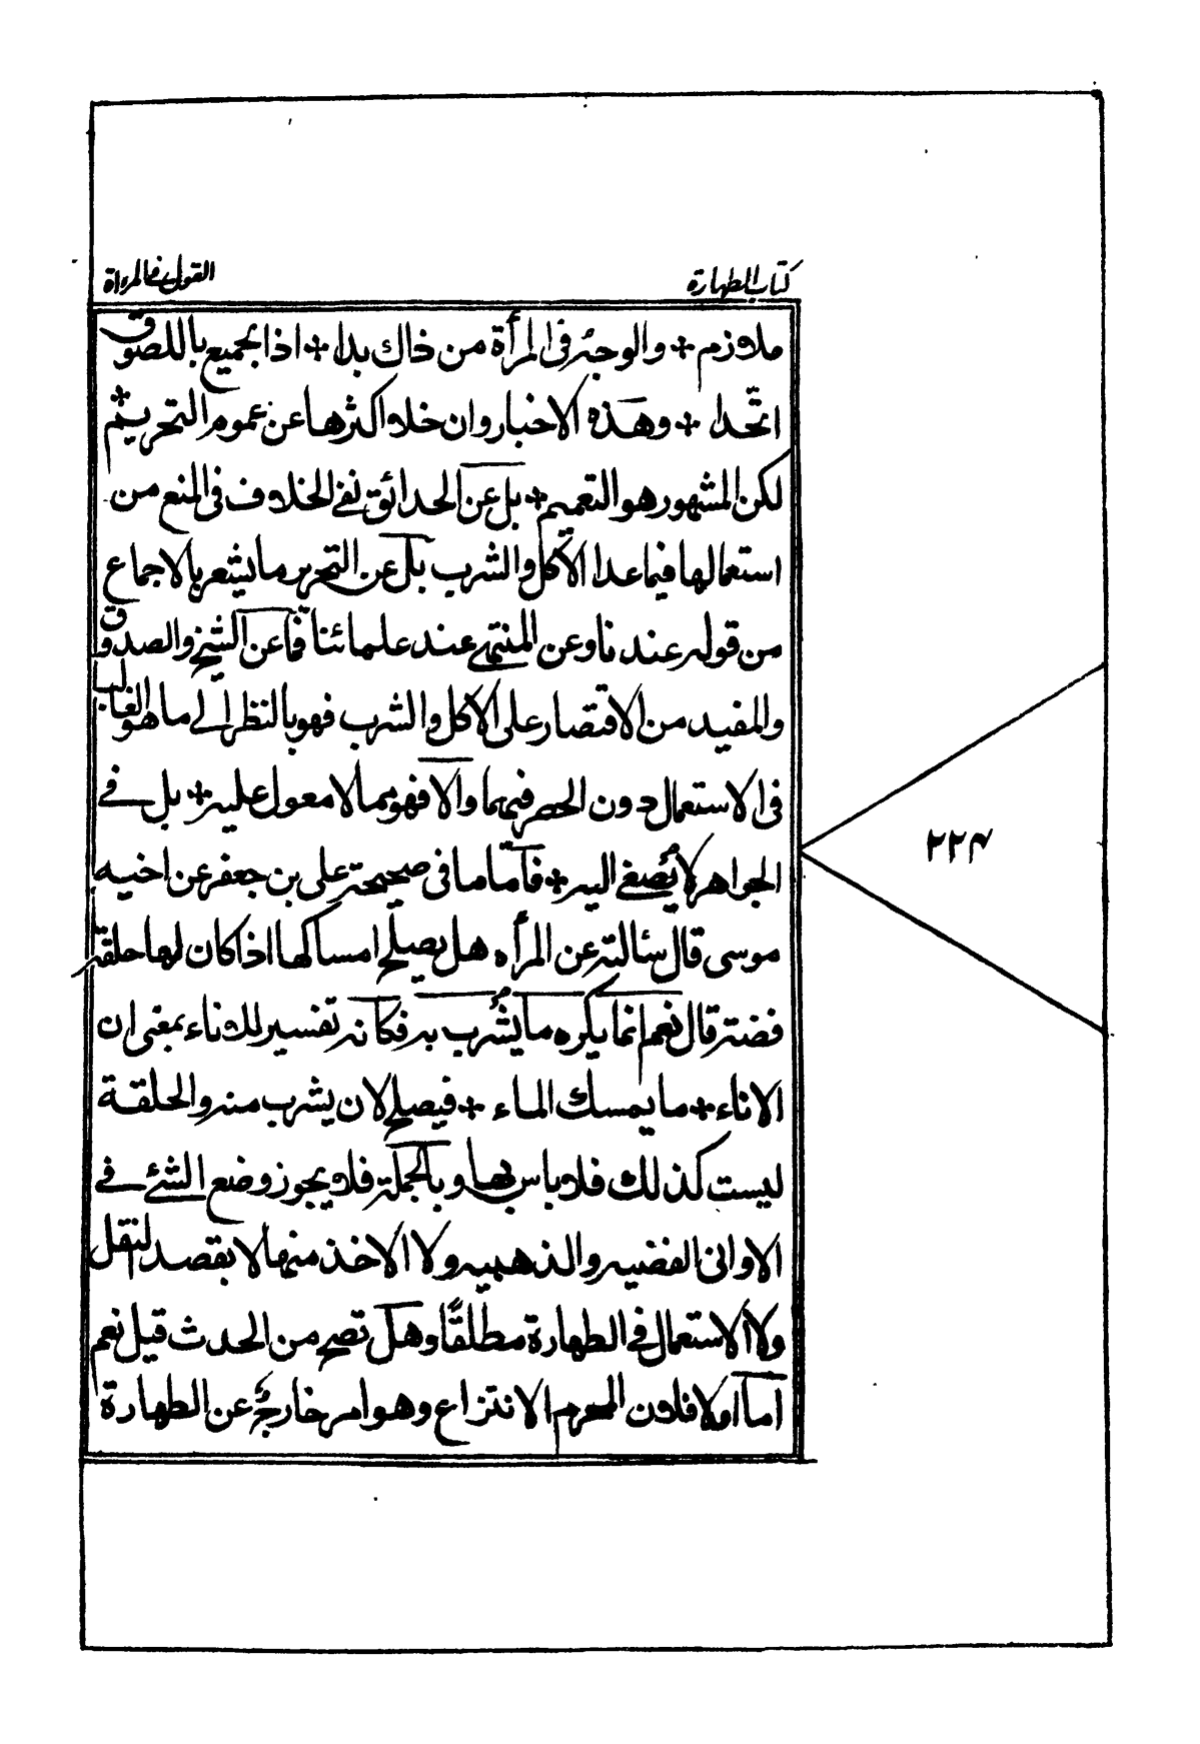 كتاب الطهارة
القول في المرءاة
ملازم + والوجه في المرأة من ذاك بدا + اذ الجميع باللصوق
اتّحدا + وهذه الاخبار وان خلا اكثرها عن عموم التحريم +
لكن المشهور هو التعميم + بل عن الحدائق نفى الخلاف فى المنع من
استعمالها فيما عدا الأكل والشرب بل عن التحرير ما يشعر بالاجماع
من قوله عندنا وعن المنتهى عند علمائنا فما عن الشيخ والصدوق
والمفيد من الاقتصار على الاكل والشرب فهو بالنظر الى ما هو الغالب
فى الاستعمال دون الحصر فيهما والا فهو مما لا معول عليه + بل فى
الجواهر لا يُصغى اليه + فأما ما فى صحيحة على بن جعفر عن اخيه
موسى قال سئالته عن المرأه هل يصلح امساكها اذا كان لها حلقة
فضة قال نعم انما يكره ما يُشرب به فكانه تفسير للاناء بمعنى ان
الاناء + ما يمسك الماء + فيصلح لان يشرب منه والحلقة
ليست كذلك فلا باس بها وبالجملة فلا يجوز وضع الشئ فى
الاوانى الفضيه والذهبيه ولا الاخذ منها لا بقصد النقل
ولا الاستعمال فى الطهارة مطلقًا وهل تصح من الحدث قيل نعم
اما اولا فلان المحرم الانتزاع وهو امر خارج عن الطهارة
٢٢٤